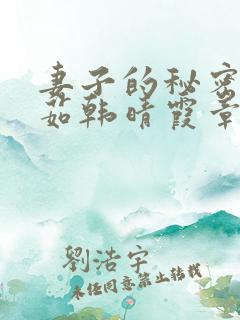 妻子的秘密
茹韩晴霞章
劉浩宇
未经同意禁止转载